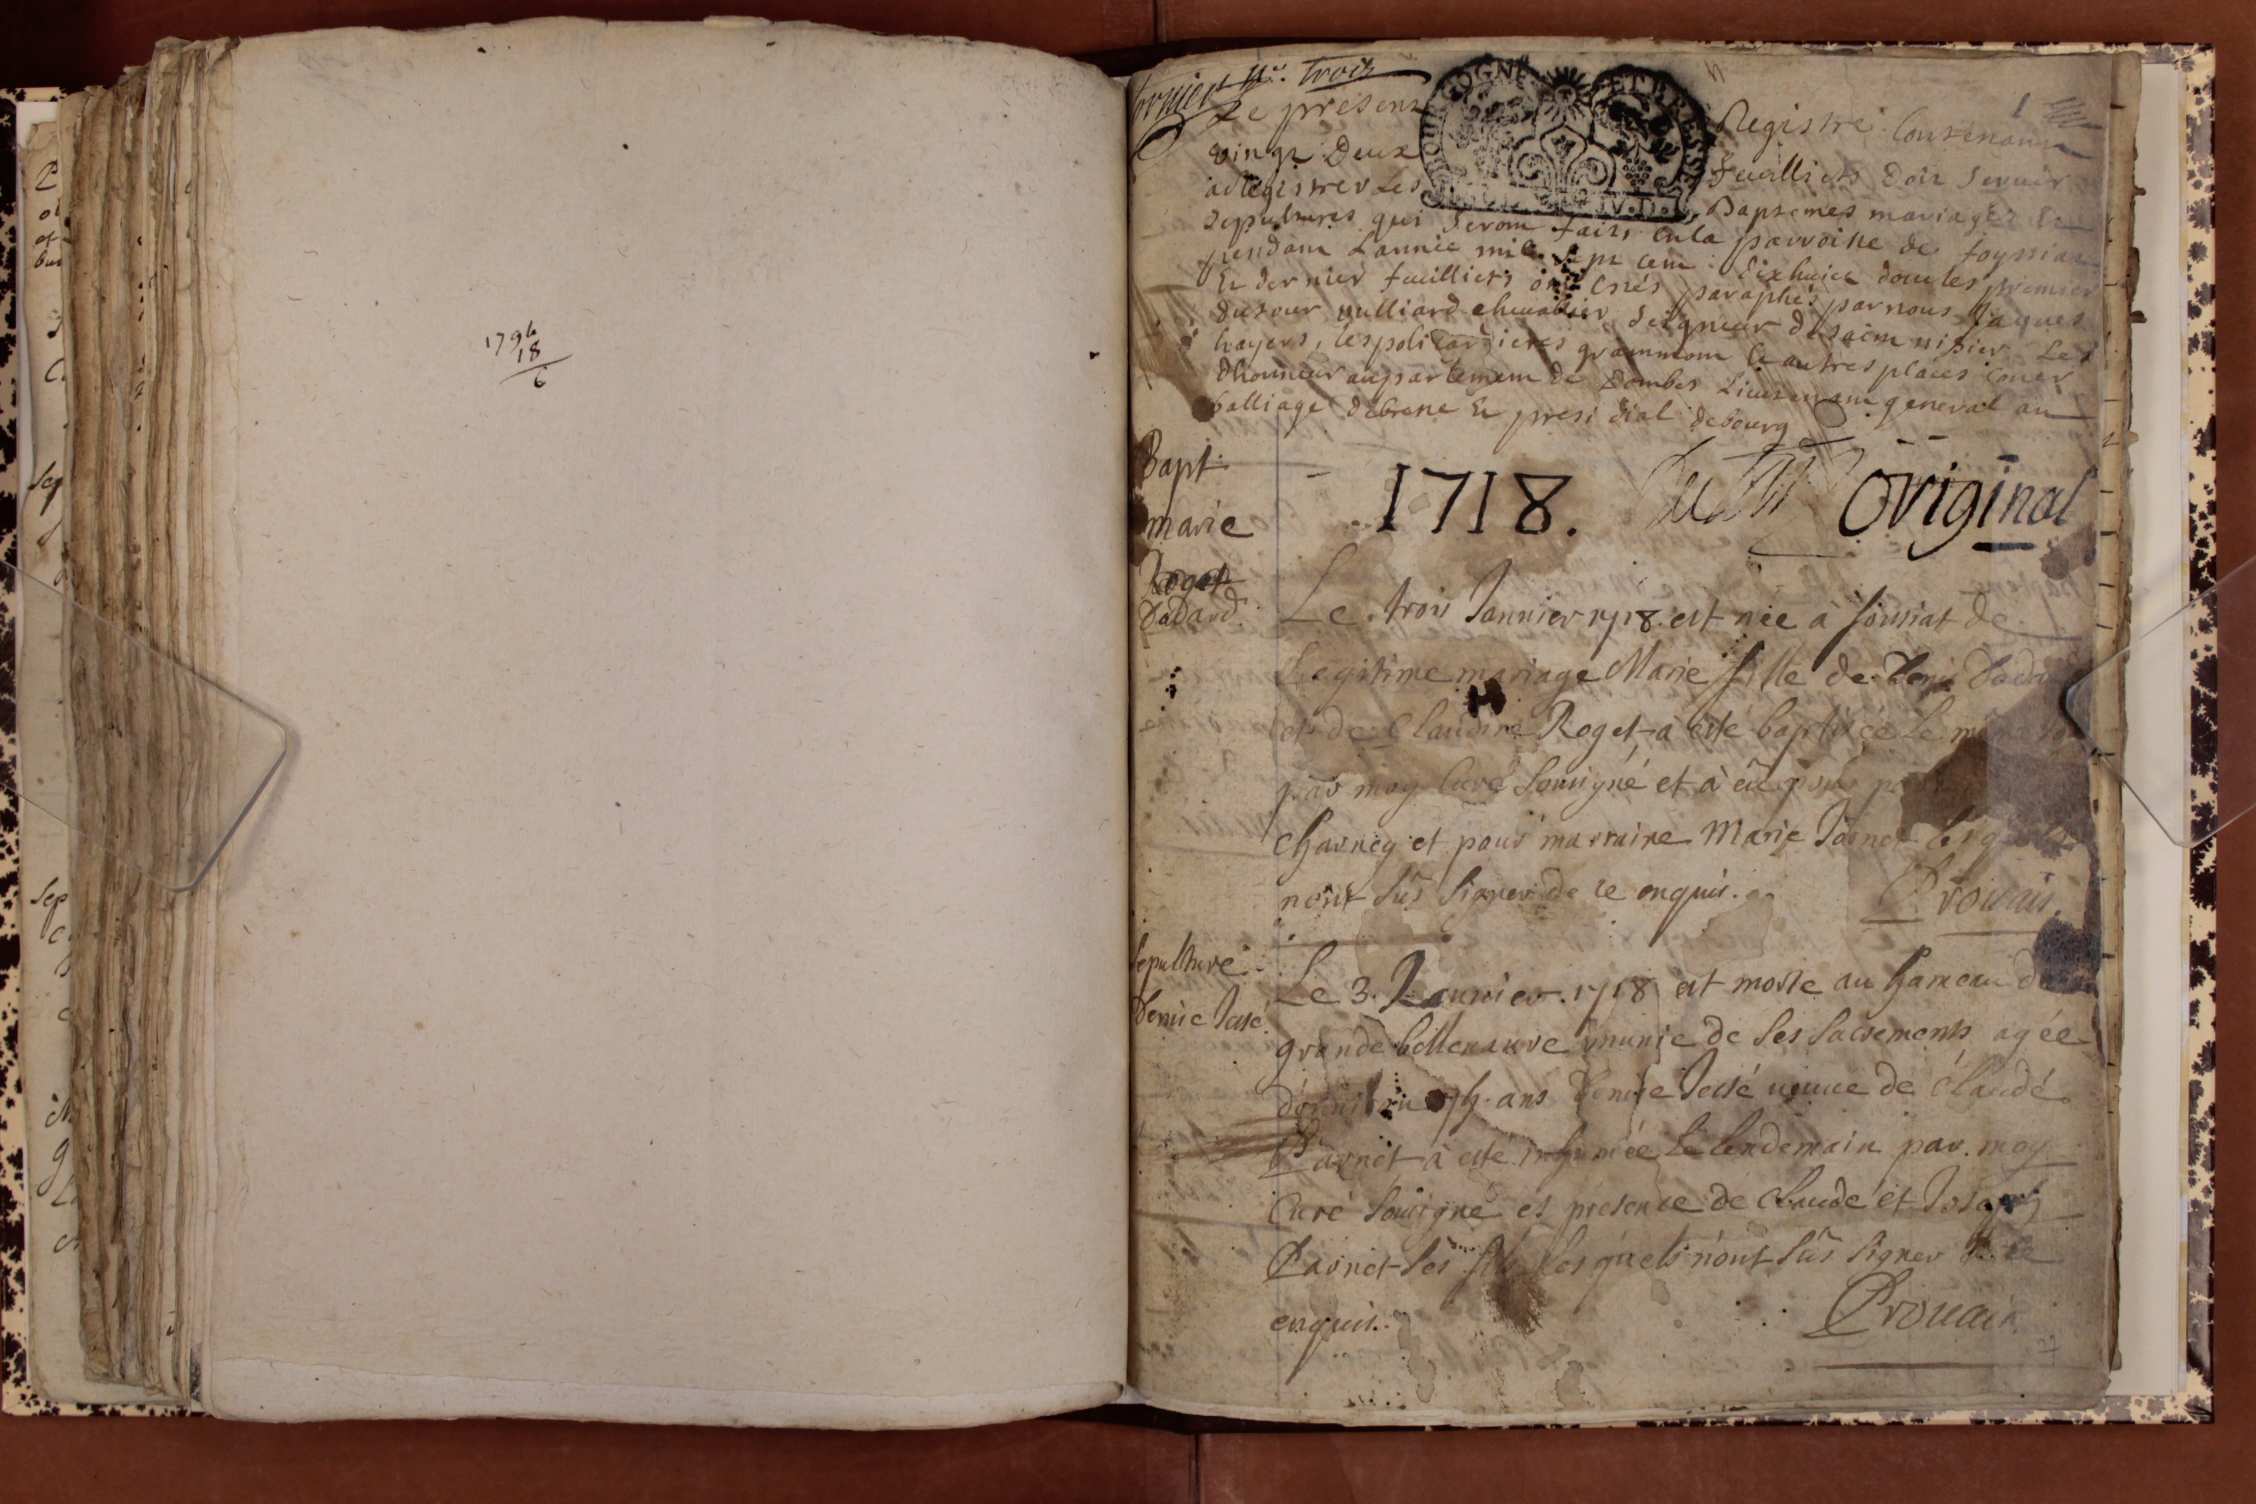 1796
18
6
premier f.er trois
1
BOURGOGNE ET BRESSE
Le present Registre Contenant
vingt Deux feuilliets doit servir
a Registrer Les Baptemes mariages et
sepultures qui seront faits en la parroisse de foyssiat
pendant Lannée mil sept cent dixhuict dont les premier
Et dernier feuilliets ont estés paraphés par nous Jaques
dufour villiard chevallier Seigneur de saint nisier Les
hayers, les policardieres grammont et autres places
d'honneur au parlement de Dombes Lieutenant general au
balliage de bresse Et presidial de bourg
1718. Original
Bapt.
marie
Roget
Dadard.
Le trois Janvier 1718 est née à foissiat de
Legitime mariage Marie fille de Denis
et de Claudine Roget à esté baptisée le
par moy Curé sousigné et à eu
charney et pour marraine Marie
n'ont sus signer de ce enquis.
Prouais.
sepulture
Denise Jassé.
Le 3. Janvier 1718 est morte au hameau de
grande bellenauve munie de ses sacrements agée
d'environ ans Denise Jassé veuve de Claude
Parnet à esté inhumée Le Lendemain par moy
Curé sousigné es presence de Claude et Joseph
Parnet ses fils lesquels n'ont sus signer de ce
enquis.
Prouais